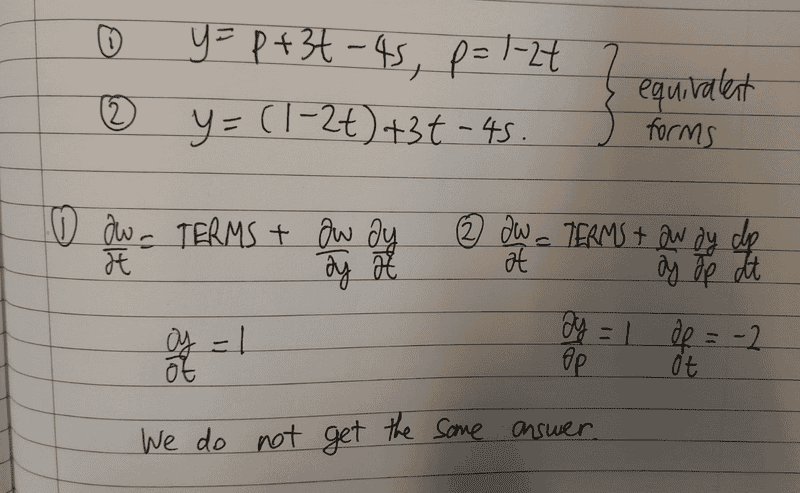 ① y = p+3t-4s, p=1-2t
② y = (1-2t)+3t-4s.
} equivalent forms
① ∂w/∂t = TERMS + ∂w/∂y ∂y/∂t ② ∂w/∂t = TERMS + ∂w/∂y ∂y/∂p dp/dt
∂y/∂t = 1 ∂y/∂p = 1 ∂p/∂t = -2
We do not get the same answer.